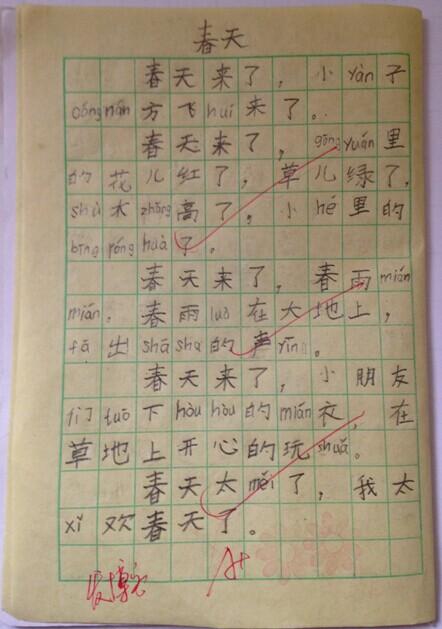 春天
春天来了，小yàn子
cóng nán方飞huí来了。
春天来了，gōng yuán里
的花儿红了，草儿绿了，
shù木zhǎng高了，小hé里的
bīng róng huà了。
春天来了，春雨mián
mián，春雨luò在大地上，
fā出shā sha的声yīng。
春天来了，小朋友
们tuō下hòu hòu的mián衣，在
草地上开心的玩shuǎ。
春天太měi了，我太
xǐ欢春天了。
A+